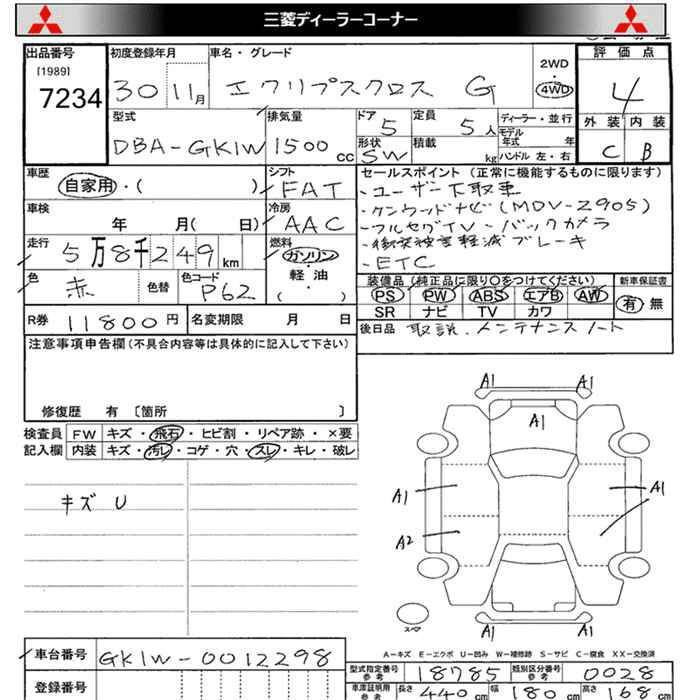 三菱ディーラーコーナー
出品番号 初度登録年月 車名・グレード 2WD 評価点
[1989]
7234 30 11月 エクリプスクロス G 4WD 4
型式 排気量 ドア 定員 ディーラー・並行 外装 内装
DBA-GK1W 1500cc 5 5人 モデル年式 年
形状 積載 C B
SW kg ハンドル 左・右
車歴 シフト セールスポイント (正常に機能するものに限ります)
自家用・( ) FAT ・ユーザー下取車
車検 冷房 ・ケンウッドナビ(MDV-Z905)
年 月( 日) AAC ・フルセグTV・バックカメラ
走行 燃料 ・衝突被害軽減ブレーキ
5万8千249km ガソリン ・ETC
色 色替 色コード 軽・油 装備品 (純正品に限り○をつけてください) 新車保証書
赤 P62 ( ・ ) PS PW ABS エアB AW 有 無
SR ナビ TV カワ
R券 11800円 名変期限 月 日 後日品 取説.メンテナンスノート
注意事項申告欄(不具合内容等は具体的に記入して下さい)
修復歴 有 〔箇所 〕
検査員 FW キズ・飛石・ヒビ割・リペア跡・×要
記入欄 内装 キズ・汚レ・コゲ・穴・スレ・キレ・破レ
キズ U
A1 A1
A1
A1 A1
A2
A1 A1
スペア
A-キズ E-エクボ U-凹み W-補修跡 S-サビ C-腐食 XX-交換済
車台番号 GK1W-0012298 型式指定番号 参考 18785 類別区分番号 参考 0028
登録番号 車庫証明用 参考 長さ 440cm 幅 180cm 高さ 168cm